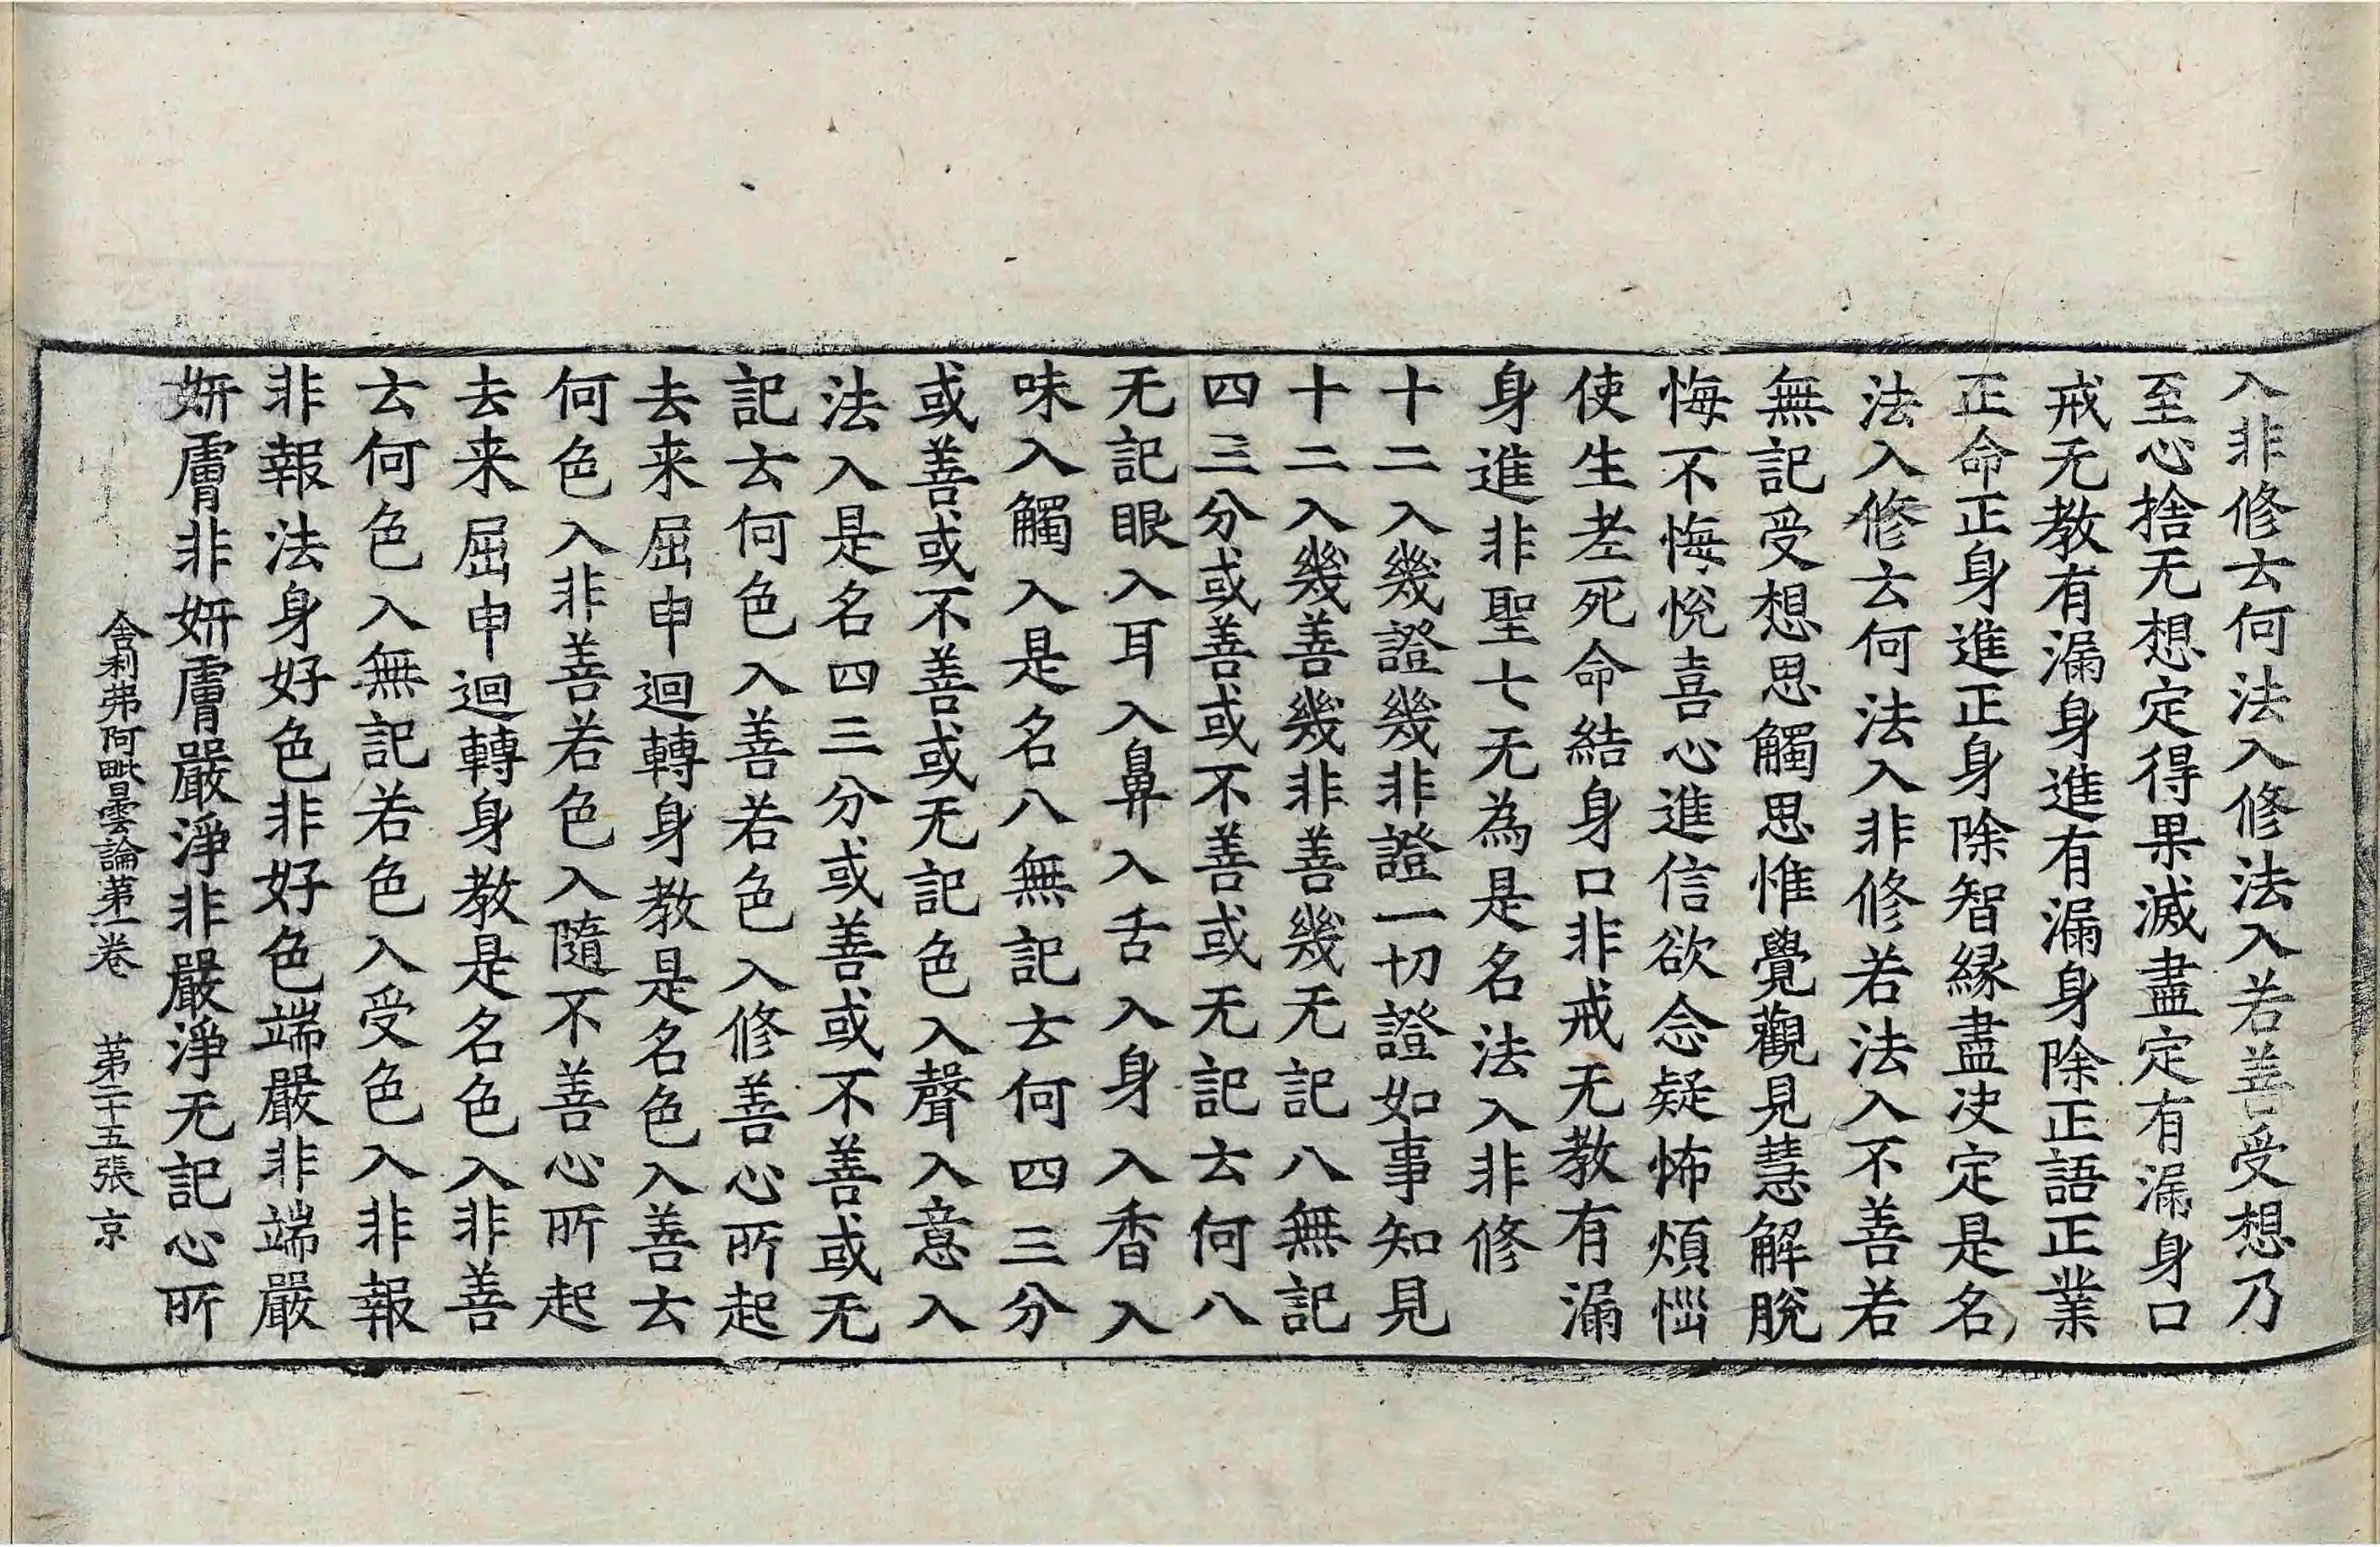 入非修去何法入修法入若善受想乃
至心捨无想定得果滅盡定有漏身口
戒无教有漏身進有漏身除正語正業
正命正身進正身除智縁盡决定是名
法入修去何法入非修若法入不善若
無記受想思觸思惟覺觀見慧解脫
悔不悔悅喜心進信欲念疑怖煩惱
使生老死命結身口非戒无教有漏
身進非聖七无為是名法入非修
十二入幾證幾非證一切證如事知見
十二入幾善幾非善幾无記八無記
四三分或善或不善或无記去何八
无記眼入耳入鼻入舌入身入香入
味入觸入是名八無記去何四三分
或善或不善或无記色入聲入意入
法入是名四三分或善或不善或无
記去何色入善若色入修善心所起
去来屈申迴轉身教是名色入善去
何色入非善若色入隨不善心所起
去来屈申迴轉身教是名色入非善
去何色入無記若色入受色入非報
非報法身好色非好色端嚴非端嚴
妍膚非妍膚嚴淨非嚴淨无記心所
舍利弗阿毗曇論第一卷 第二十五張 京